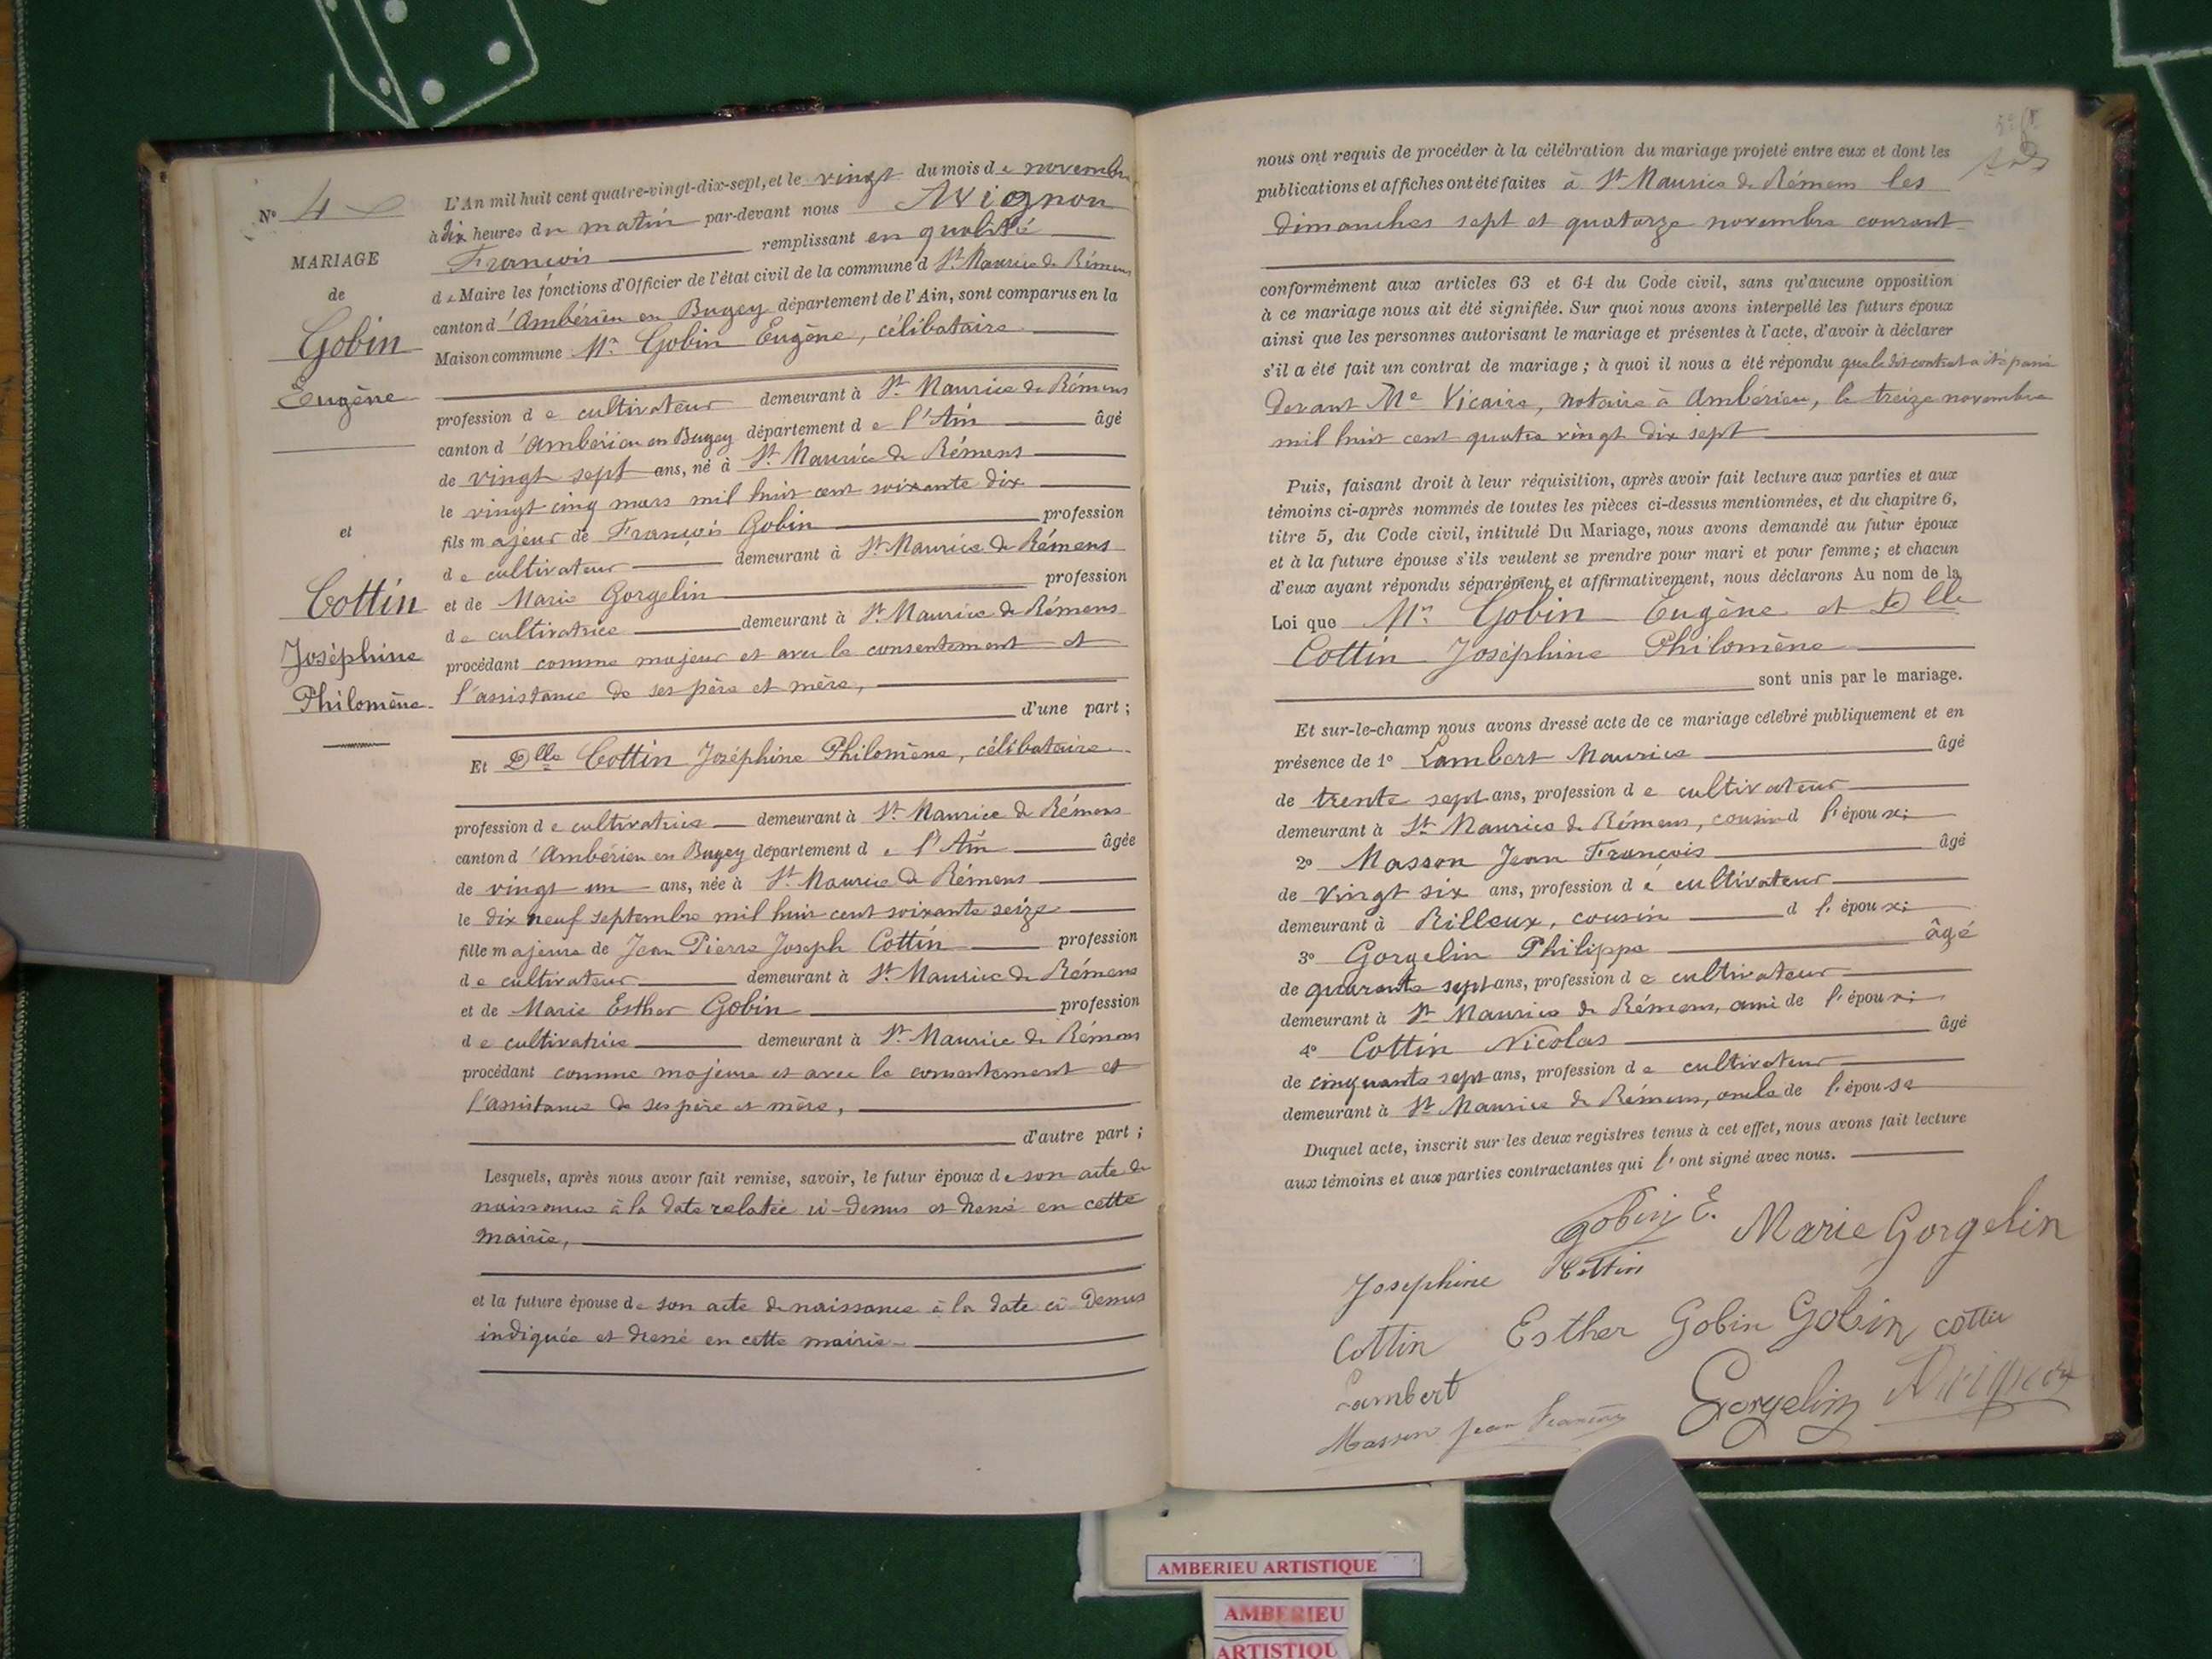 N° 4
MARIAGE
de
Gobin
Eugène
et
Cottin
Joséphine
Philomène
L'An mil huit cent quatre-vingt-dix-sept, et le vingt du mois de novembre
à dix heures du matin par-devant nous Avignon
François remplissant en qualité
de Maire les fonctions d'Officier de l'état civil de la commune d St Maurice de Rémens
canton d'Ambérieu en Bugey département de l'Ain, sont comparus en la
Maison commune Mr Gobin Eugène, célibataire
profession de cultivateur demeurant à St Maurice de Rémens
canton d'Ambérieu en Bugey département de l'Ain âgé
de vingt sept ans, né à St Maurice de Rémens
le vingt cinq mars mil huit cent soixante dix
fils majeur de François Gobin profession
de cultivateur demeurant à St Maurice de Rémens
et de Marie Gorgelin profession
de cultivatrice demeurant à St Maurice de Rémens
procédant comme majeur et avec le consentement et
l'assistance de ses père et mère,
d'une part ;
Et Dlle Cottin Joséphine Philomène, célibataire
profession de cultivatrice demeurant à St Maurice de Rémens
canton d'Ambérieu en Bugey département de l'Ain âgée
de vingt un ans, née à St Maurice de Rémens
le dix neuf septembre mil huit cent soixante seize
fille majeure de Jean Pierre Joseph Cottin profession
de cultivateur demeurant à St Maurice de Rémens
et de Marie Esther Gobin profession
de cultivatrice demeurant à St Maurice de Rémens
procédant comme majeure et avec le consentement et
l'assistance de ses père et mère,
d'autre part ;
Lesquels, après nous avoir fait remise, savoir, le futur époux de son acte de
naissance à la date relatée ci-dessus et dressé en cette
mairie,
et la future épouse de son acte de naissance à la date ci-dessus
indiquée et dressé en cette mairie
nous ont requis de procéder à la célébration du mariage projeté entre eux et dont les
publications et affiches ont été faites à St Maurice de Rémens les
dimanches sept et quatorze novembre courant
conformément aux articles 63 et 64 du Code civil, sans qu'aucune opposition
à ce mariage nous ait été signifiée. Sur quoi nous avons interpellé les futurs époux
ainsi que les personnes autorisant le mariage et présentes à l'acte, d'avoir à déclarer
s'il a été fait un contrat de mariage ; à quoi il nous a été répondu que le dit contrat a été passé
devant Me Vicaire, notaire à Ambérieu, le treize novembre
mil huit cent quatre vingt dix sept
Puis, faisant droit à leur réquisition, après avoir fait lecture aux parties et aux
témoins ci-après nommés de toutes les pièces ci-dessus mentionnées, et du chapitre 6,
titre 5, du Code civil, intitulé Du Mariage, nous avons demandé au futur époux
et à la future épouse s'ils veulent se prendre pour mari et pour femme ; et chacun
d'eux ayant répondu séparément et affirmativement, nous déclarons Au nom de la
Loi que Mr Gobin Eugène et Dlle
Cottin Joséphine Philomène
sont unis par le mariage.
Et sur-le-champ nous avons dressé acte de ce mariage célébré publiquement et en
présence de 1° Lambert Maurice âgé
de trente sept ans, profession de cultivateur
demeurant à St Maurice de Rémens, cousin d l'époux;
2° Masson Jean François âgé
de vingt six ans, profession de cultivateur
demeurant à Rilleux, cousin d l'époux;
3° Gorgelin Philippe âgé
de quarante sept ans, profession de cultivateur
demeurant à St Maurice de Rémens, ami de l'époux;
4° Cottin Nicolas âgé
de cinquante sept ans, profession de cultivateur
demeurant à St Maurice de Rémens, oncle de l'épouse
Duquel acte, inscrit sur les deux registres tenus à cet effet, nous avons fait lecture
aux témoins et aux parties contractantes qui l'ont signé avec nous.
gobin E. Marie Gorgelin
Josephine Cottin
Cottin Esther Gobin Gobin cottin
Lambert Gorgelin Avignon
Masson jean françois
AMBERIEU ARTISTIQUE
AMBERIEU
ARTISTIQU